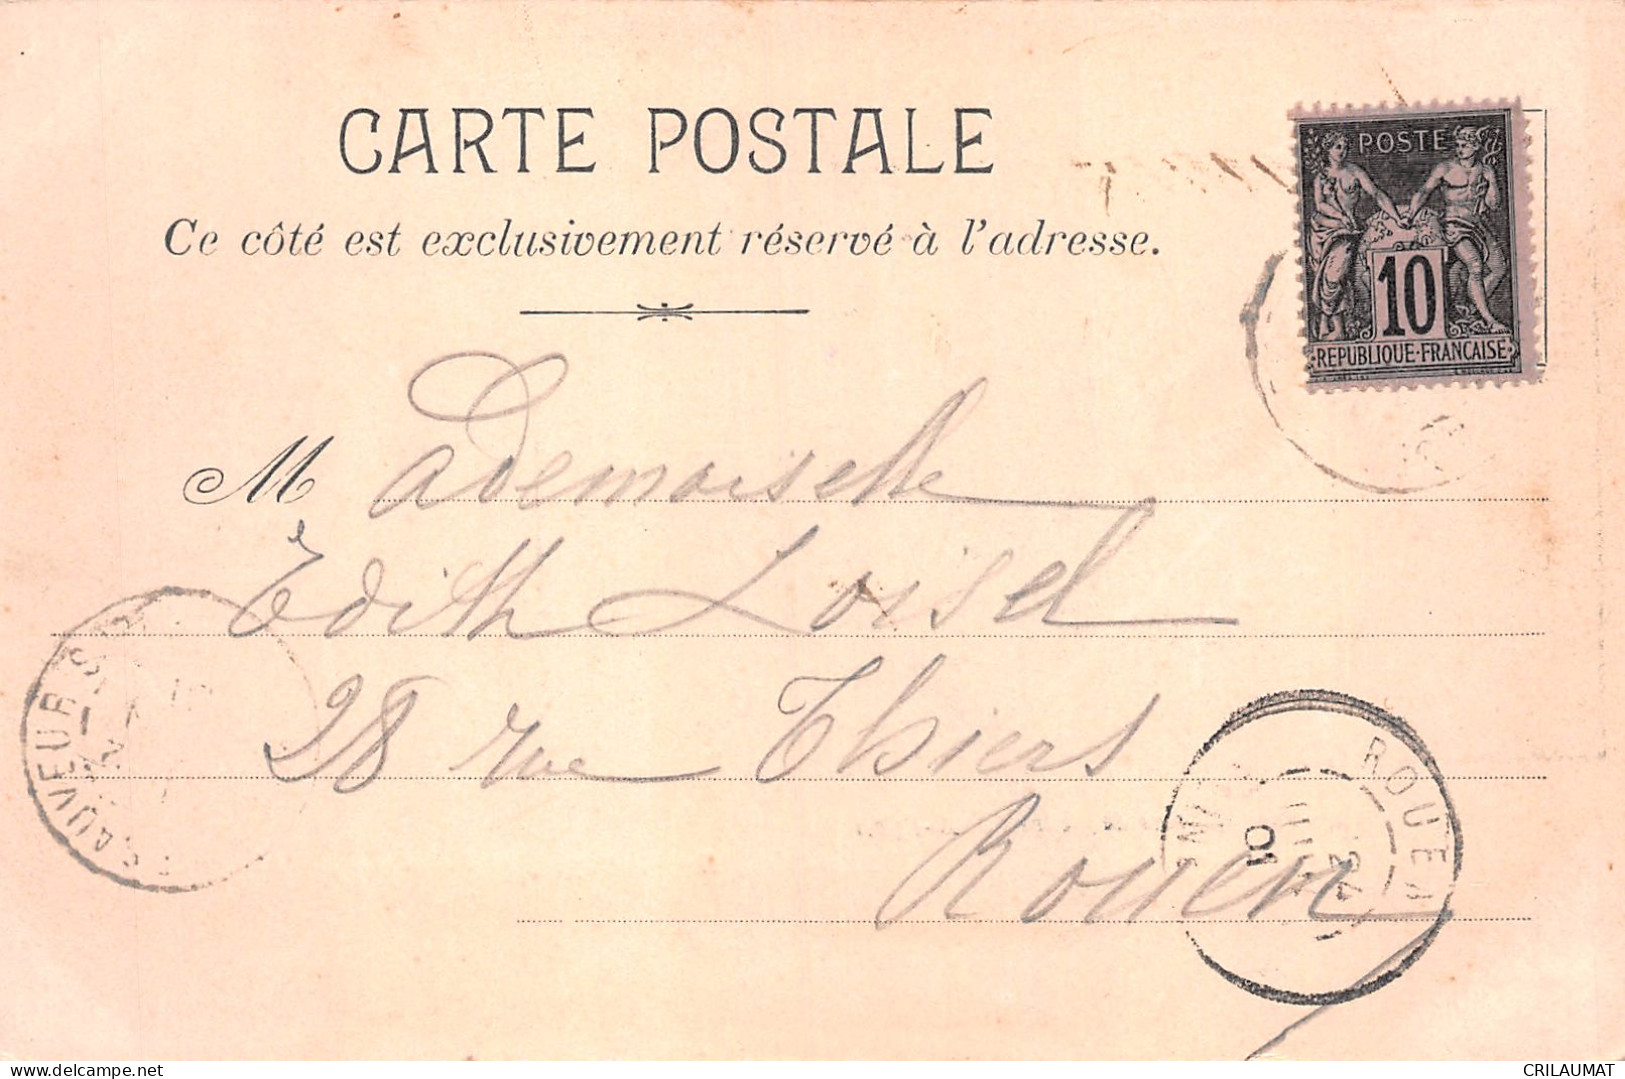 CARTE POSTALE
Ce côté est exclusivement réservé à l'adresse.
POSTE
10
REPUBLIQUE·FRANCAISE
Mademoiselle
Edith Loisel
28 rue Thiers
Rouen
SAUVEUR
ROUEN
01
CRILAUMAT